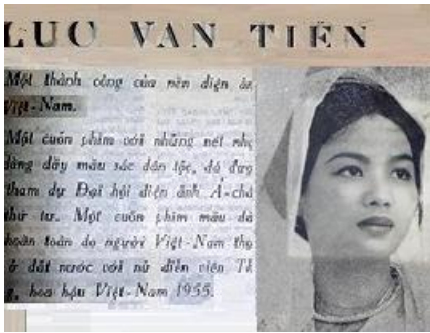 LUC VAN TIÊN
Một thành công của nền điện ản
Việt-Nam.
Một cuốn phim với những nét nhẹ
đầy mầu sắc dân tộc, đã được
tham dự Đại hội điện ảnh Á-châ
thứ tư. Một cuốn phim mầu đã
hoàn toàn do người Việt-Nam thự
ở đất nước với nữ diễn viên Th
g, hoa hậu Việt-Nam 1955.